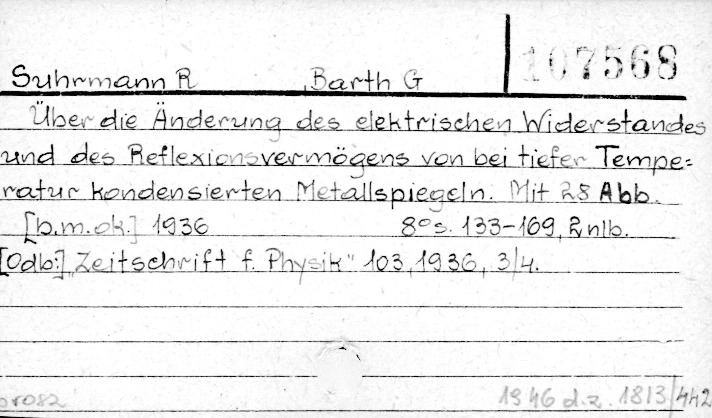 107568
Suhrmann R , Barth G
Über die Änderung des elektrischen Widerstandes
und des Reflexionsvermögens von bei tiefer Tempe=
ratur kondensierten Metallspiegeln. Mit 28 Abb.
[b.m.ok.] 1936 8° s. 133-169, 2 nlb.
[Odb:] „Zeitschrift f. Physik" 103, 1936, 3/4.
1946 d.z. 1813/442